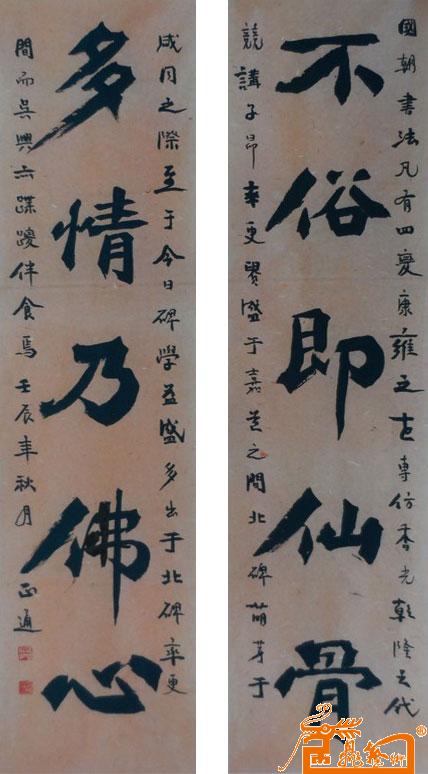 國朝書法凡有四變康雍之世專仿香光乾隆之代
不俗即仙骨
競講子昂率更貿盛于嘉道之間北碑萌芽于
咸同之際至于今日碑學益盛多出于北碑率更
多情乃佛心
間而吳興亦蹀躞伴食焉壬辰年秋月正通